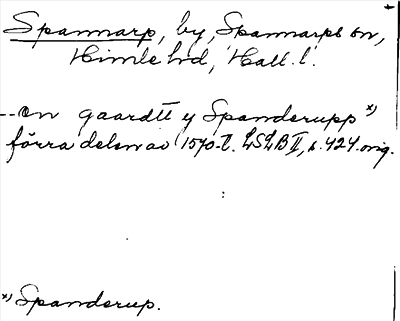 Spannarp, by, Spannarps sn,
Himle hd, Hall. l.
--en gaardtt y Spanderupp x)
förra delen av 1570-t. LSLB II, s. 424. orig.
x) Spanderup.